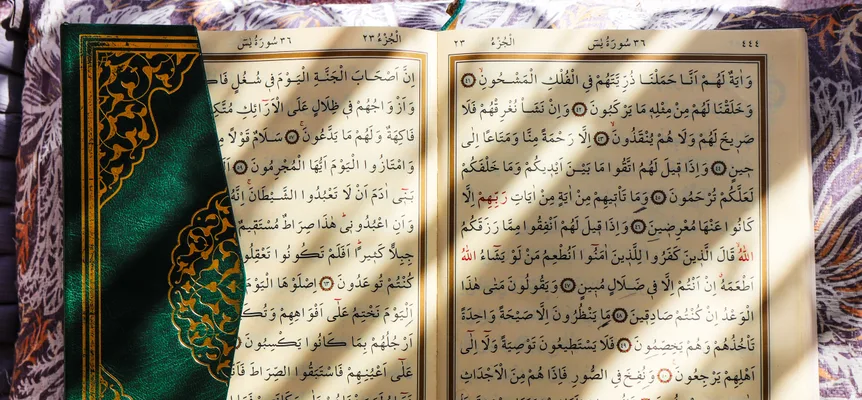 ٤٤٤ ٣٦ سُورَةُ يٰسٓ الْجُزْءُ ٢٣
وَاٰيَةٌ لَهُمْ اَنَّا حَمَلْنَا ذُرِّيَّتَهُمْ فِي الْفُلْكِ الْمَشْحُونِۙ ٤١
وَخَلَقْنَا لَهُمْ مِنْ مِثْلِهٖ مَا يَرْكَبُونَ ٤٢ وَاِنْ نَشَأْ نُغْرِقْهُمْ فَلَا
صَرِيخَ لَهُمْ وَلَا هُمْ يُنْقَذُونَۙ ٤٣ اِلَّا رَحْمَةً مِنَّا وَمَتَاعًا اِلٰى
حِينٍ ٤٤ وَاِذَا قِيلَ لَهُمُ اتَّقُوا مَا بَيْنَ اَيْدِيكُمْ وَمَا خَلْفَكُمْ
لَعَلَّكُمْ تُرْحَمُونَ ٤٥ وَمَا تَأْتِيهِمْ مِنْ اٰيَةٍ مِنْ اٰيَاتِ رَبِّهِمْ اِلَّا
كَانُوا عَنْهَا مُعْرِضِينَ ٤٦ وَاِذَا قِيلَ لَهُمْ اَنْفِقُوا مِمَّا رَزَقَكُمُ
اللّٰهُۙ قَالَ الَّذِينَ كَفَرُوا لِلَّذِينَ اٰمَنُٓوا اَنُطْعِمُ مَنْ لَوْ يَشَٓاءُ اللّٰهُ
اَطْعَمَهُۗ اِنْ اَنْتُمْ اِلَّا فِي ضَلَالٍ مُبِينٍ ٤٧ وَيَقُولُونَ مَتٰى هٰذَا
الْوَعْدُ اِنْ كُنْتُمْ صَادِقِينَ ٤٨ مَا يَنْظُرُونَ اِلَّا صَيْحَةً وَاحِدَةً
تَأْخُذُهُمْ وَهُمْ يَخِصِّمُونَ ٤٩ فَلَا يَسْتَطِيعُونَ تَوْصِيَةً وَلَٓا اِلٰٓى
اَهْلِهِمْ يَرْجِعُونَ ٥٠ وَنُفِخَ فِي الصُّورِ فَاِذَا هُمْ مِنَ الْاَجْدَاثِ
الْجُزْءُ ٢٣ ٣٦ سُورَةُ يٰسٓ
اِنَّ اَصْحَابَ الْجَنَّةِ الْيَوْمَ فِي شُغُلٍ
وَاَزْوَاجُهُمْ فِي ظِلَالٍ عَلَى الْاَرَٓائِكِ
فَاكِهَةٌ وَلَهُمْ مَا يَدَّعُونَۚ ٥٧ سَلَامٌ قَوْلًا
وَامْتَازُوا الْيَوْمَ اَيُّهَا الْمُجْرِمُونَ ٥٩
بَنِٓي اٰدَمَ اَنْ لَا تَعْبُدُوا الشَّيْطَانَۚ اِنَّهُ
وَاَنِ اعْبُدُونِيۜ هٰذَا صِرَاطٌ مُسْتَقِيمٌ
جِبِلًّا كَثِيرًاۜ اَفَلَمْ تَكُونُوا تَعْقِلُونَ
كُنْتُمْ تُوعَدُونَ ٦٣ اِصْلَوْهَا الْيَوْمَ
اَلْيَوْمَ نَخْتِمُ عَلٰٓى اَفْوَاهِهِمْ
اَرْجُلُهُمْ بِمَا كَانُوا يَكْسِبُونَ
عَلٰٓى اَعْيُنِهِمْ فَاسْتَبَقُوا الصِّرَاطَ